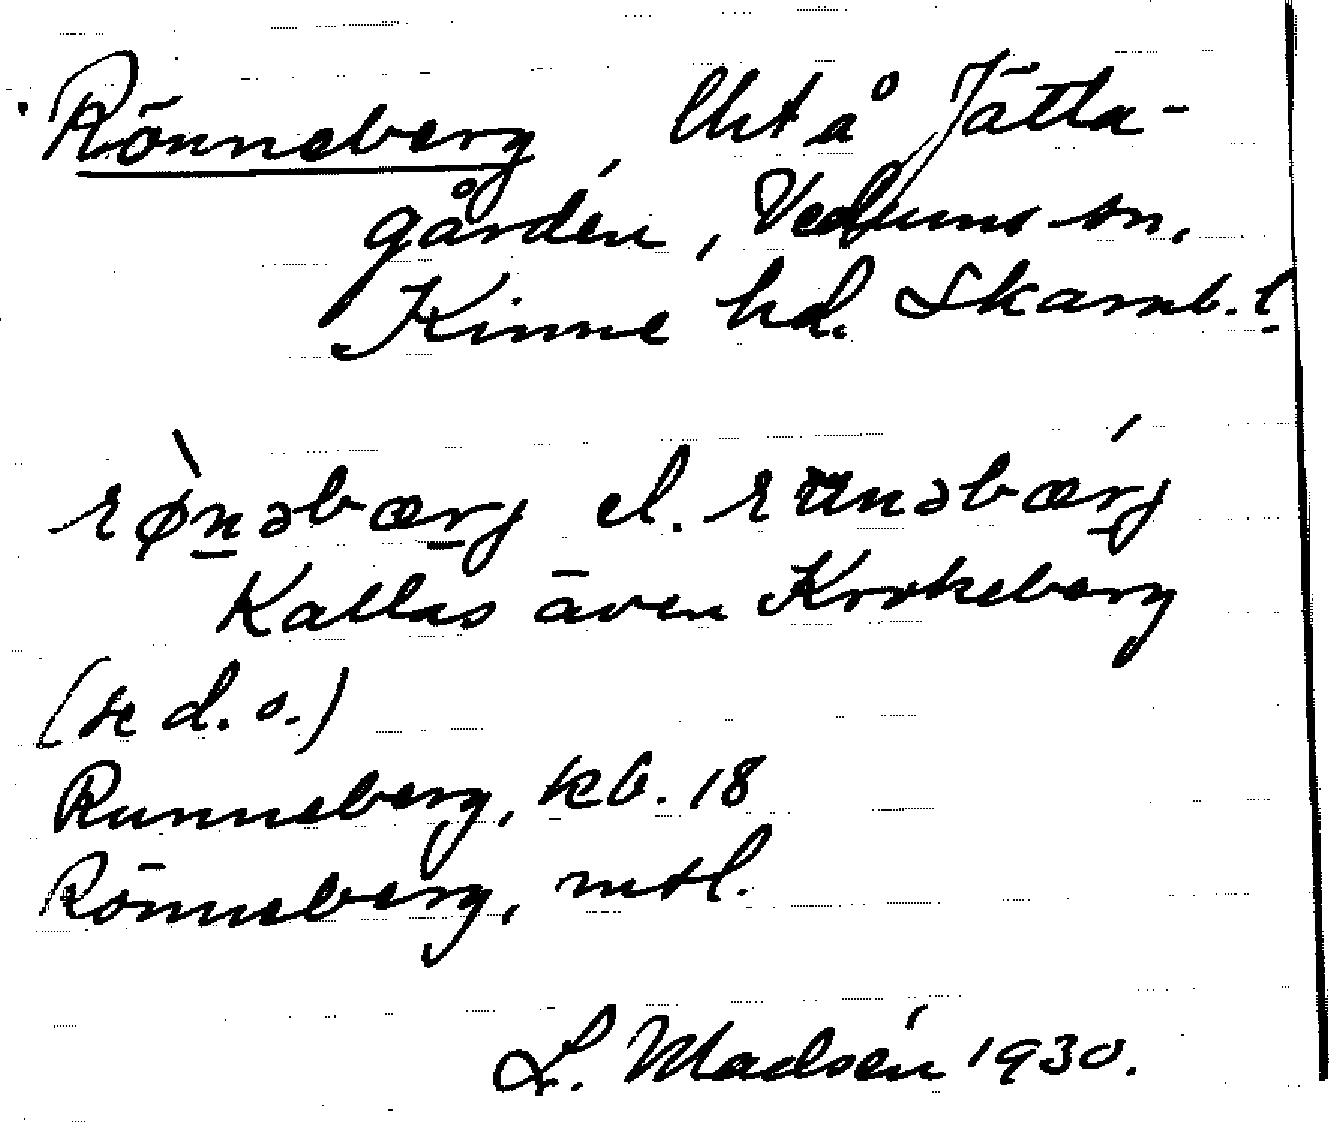 Rönneberg, lht å Jätta-
gården, Vedums sn,
Kinne hd. Skarab. l.
rø̀nəbærg el. rünəbærg
Kallas även Krokeberg
(se d. o.)
Runneberg, kb. 18
Rönneberg, mtl.
L. Madsén 1930.